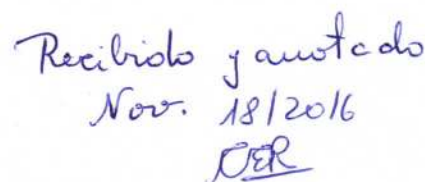 Recibido y anotado
Nov. 18/2016